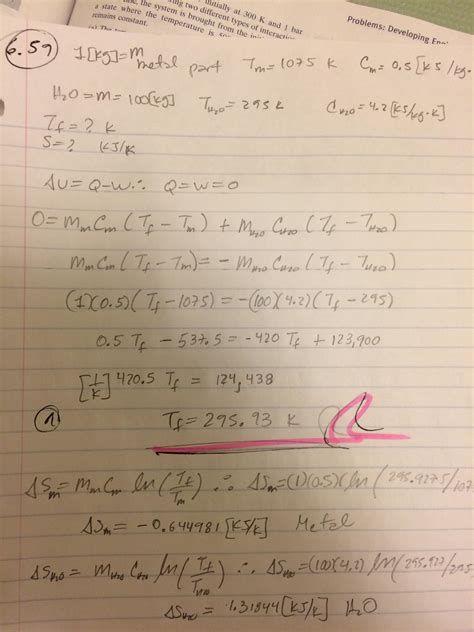 initially at 300 K and 1 bar
ing two different types of interaction
the system is brought from the
a state where the temperature is
remains constant.
Problems: Developing Eng
6.59
1[kg]=m metal part Tm=1075 K Cm=0.5[KJ/kg.
H2O=m=100[kg] TH2O=295K CH2O=4.2[KJ/kg·K]
Tf=? K
S=? KJ/K
ΔU=Q-W∴ Q=W=0
0=MmCm(Tf-Tm)+MH2O CH2O(Tf-TH2O)
MmCm(Tf-Tm)=-MH2O CH2O(Tf-TH2O)
(1)(0.5)(Tf-1075)=-(100)(4.2)(Tf-295)
0.5 Tf - 537.5=-420 Tf + 123,900
[1/K] 420.5 Tf = 124,438
1 Tf=295.93 K
ΔSm=MmCm ln(Tf/Tm) ∴ ΔSm=(1)(0.5)(ln(295.9275/107
ΔSm=-0.644981[KJ/K] Metal
ΔSH2O=MH2O CH2O ln(Tf/TH2O) ∴ ΔSH2O=(100)(4.2)ln(295.927/295
ΔSH2O=1.31844[KJ/K] H2O